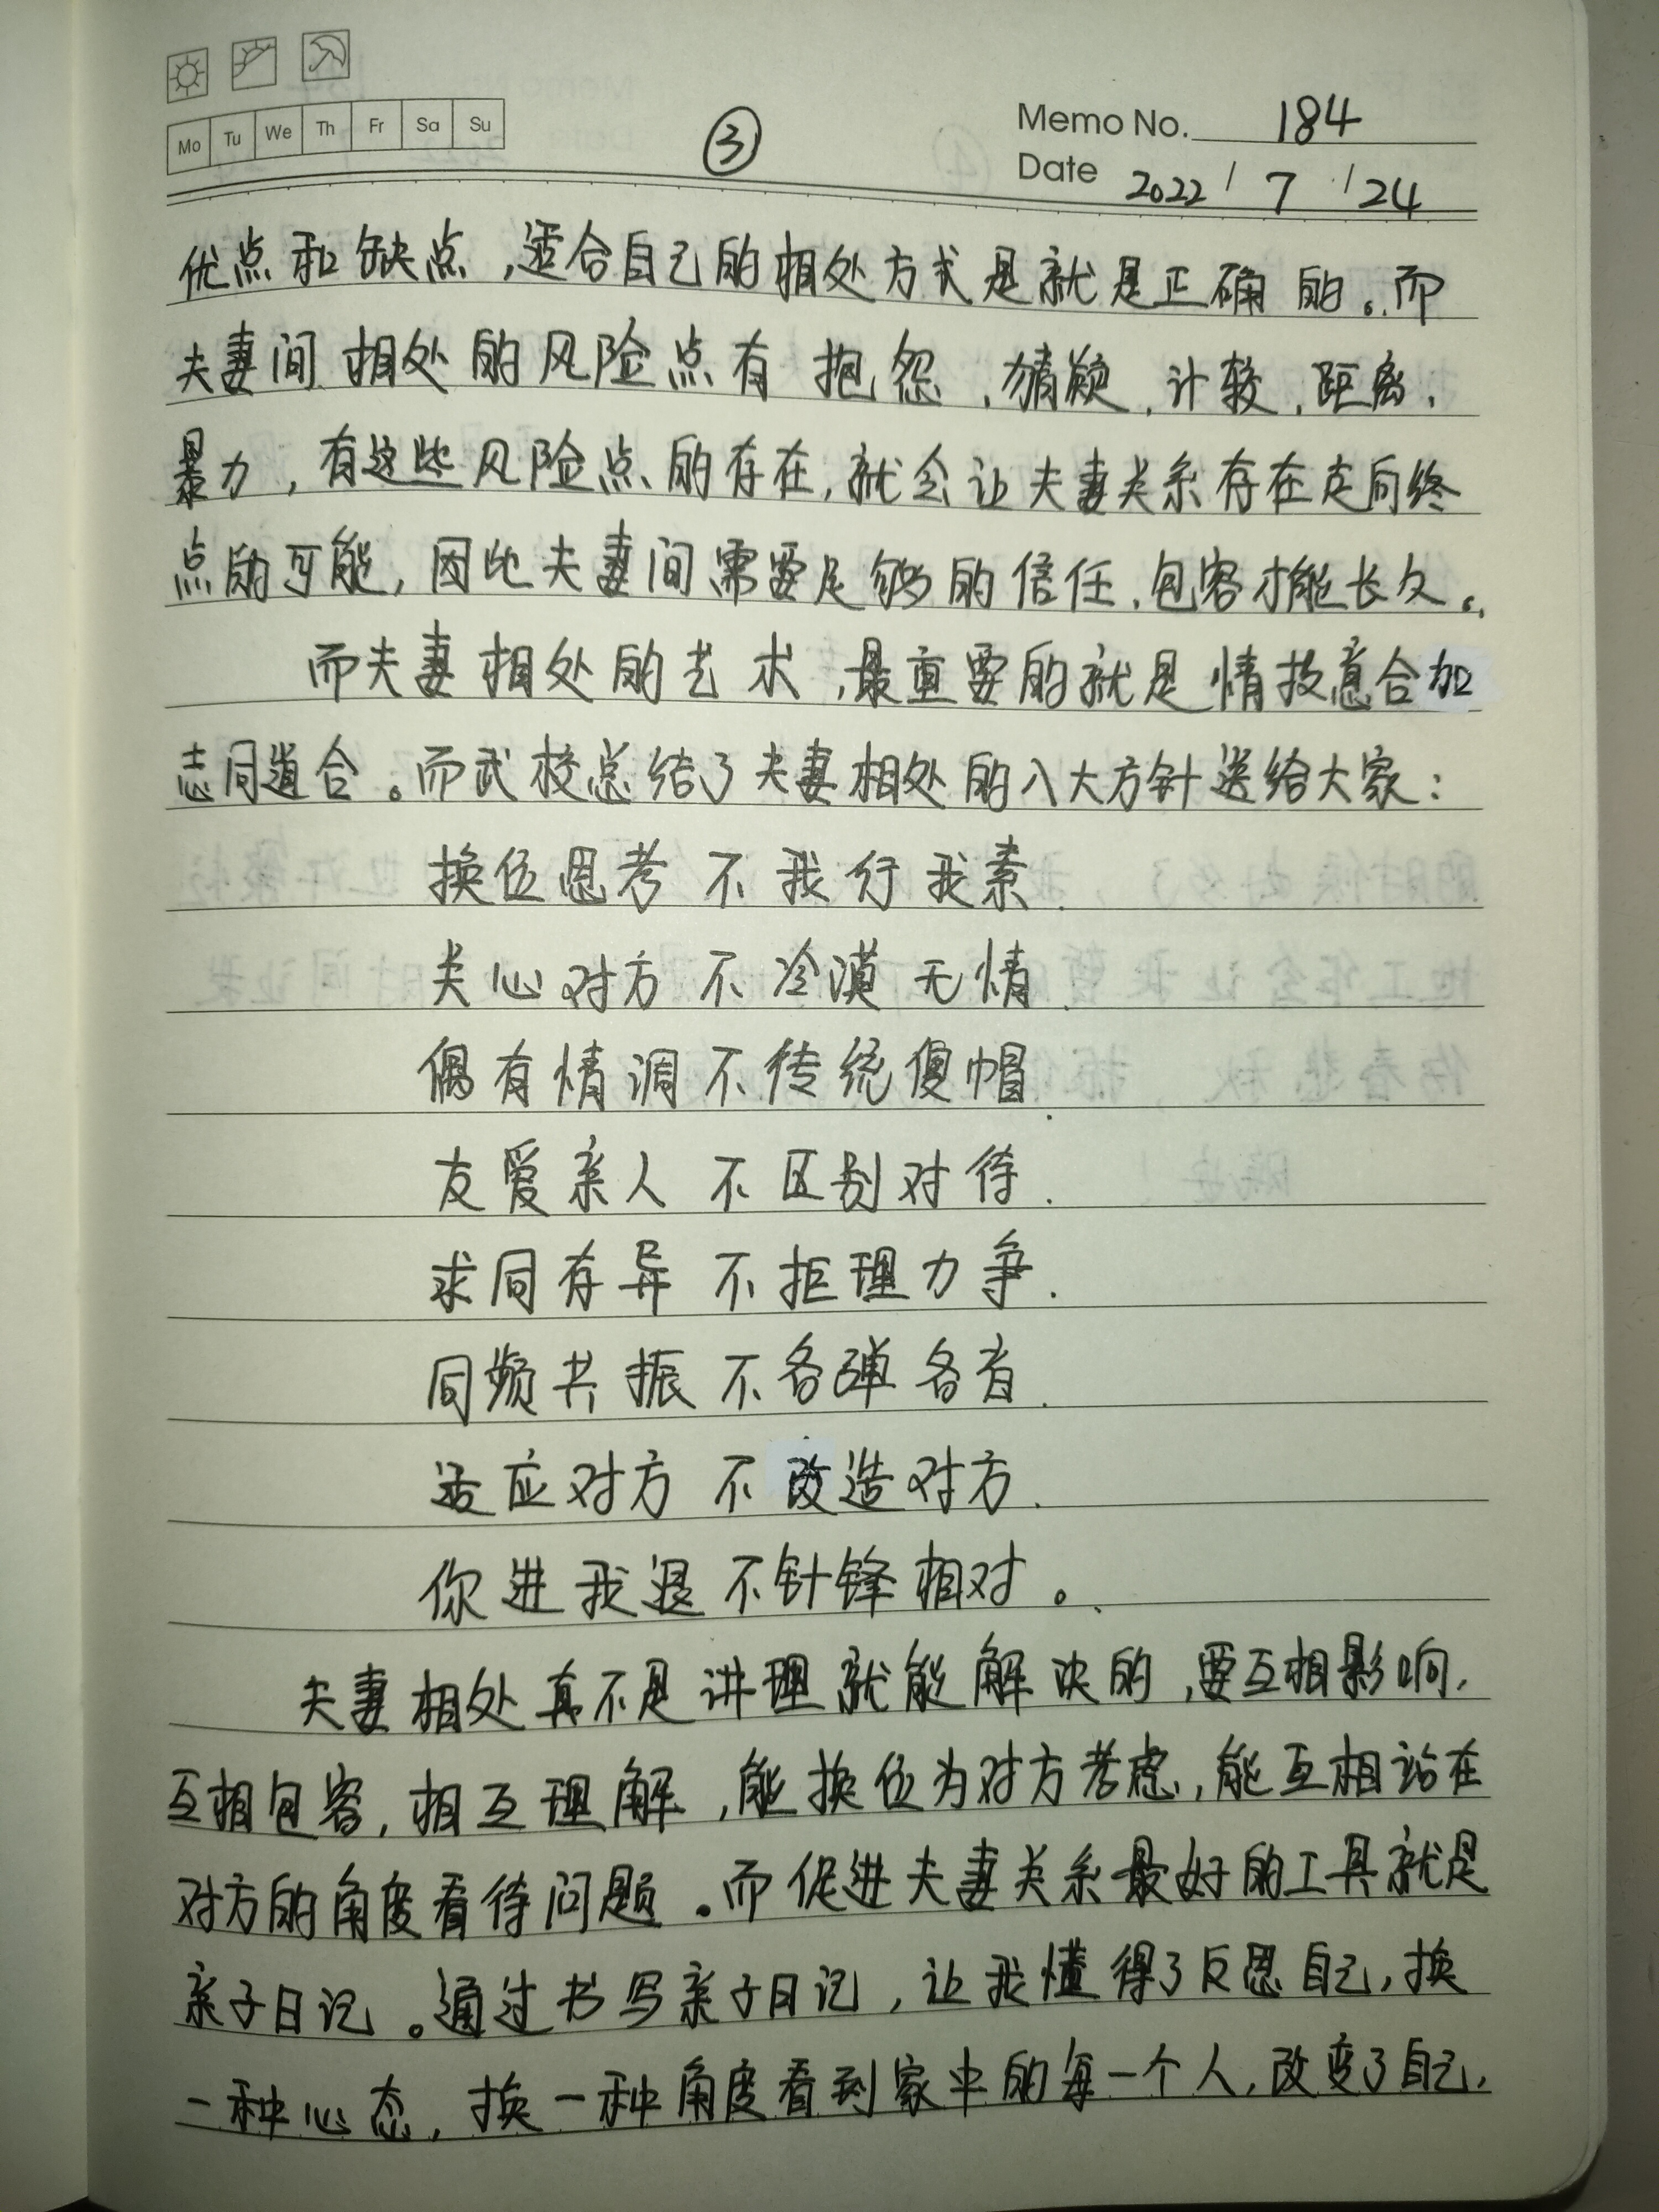 Mo Tu We Th Fr Sa Su
③
Memo No. 184
Date 2022 / 7 / 24
优点和缺点，适合自己的相处方式是就是正确的。而
夫妻间相处的风险点有抱怨、猜疑、计较、距离、
暴力，有这些风险点的存在，就会让夫妻关系存在走向终
点的可能，因此夫妻间需要足够的信任、包容才能长久。
而夫妻相处的艺术，最重要的就是情投意合加
志同道合。而武校总结了夫妻相处的八大方针送给大家：
换位思考 不我行我素.
关心对方 不冷漠无情.
偶有情调 不传统傻帽.
友爱亲人 不区别对待.
求同存异 不拒理力争.
同频共振 不各弹各音.
适应对方 不改造对方.
你进我退 不针锋相对。
夫妻相处真不是讲理就能解决的，要互相影响，
互相包容，相互理解，能换位为对方考虑，能互相站在
对方的角度看待问题。而促进夫妻关系最好的工具就是
亲子日记。通过书写亲子日记，让我懂得了反思自己，换
一种心态，换一种角度看到家中的每一个人，改变了自己，